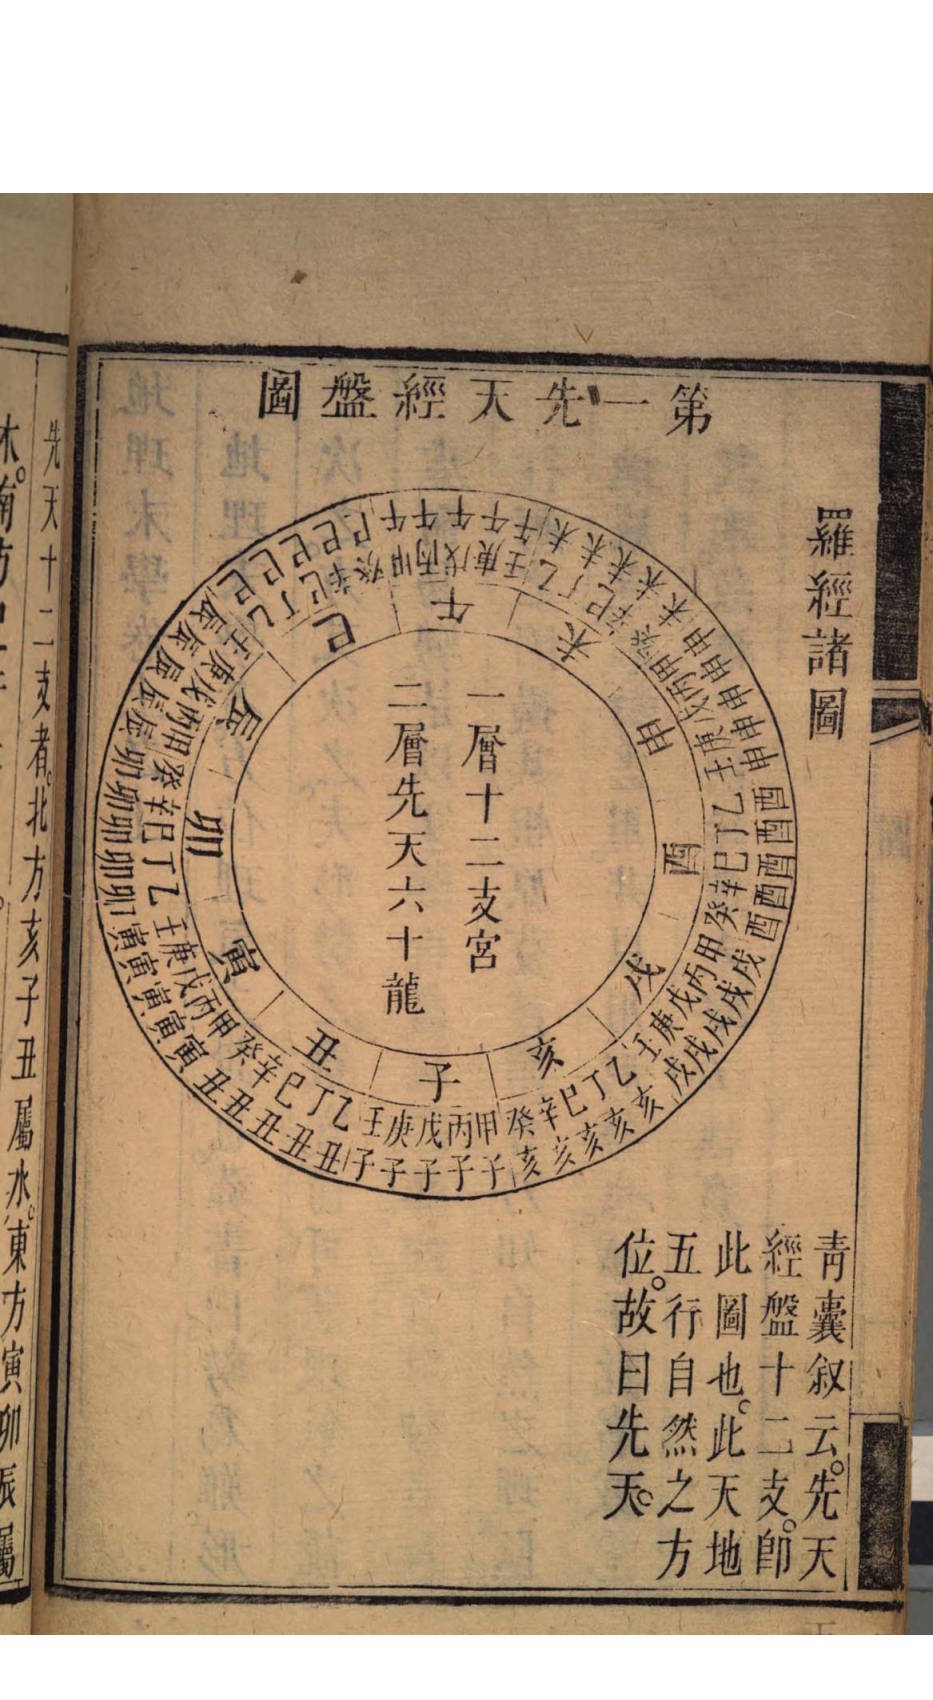 羅經諸圖
第一先天經盤圖
一層十二支宮
二層先天六十龍
子丑寅卯辰巳午未申酉戌亥
甲子丙子戊子庚子壬子
乙丑丁丑巳丑辛丑癸丑
甲寅丙寅戊寅庚寅壬寅
乙卯丁卯巳卯辛卯癸卯
甲辰丙辰戊辰庚辰壬辰
乙巳丁巳巳巳辛巳癸巳
甲午丙午戊午庚午壬午
乙未丁未巳未辛未癸未
甲申丙申戊申庚申壬申
乙酉丁酉巳酉辛酉癸酉
甲戌丙戌戊戌庚戌壬戌
乙亥丁亥巳亥辛亥癸亥
青囊叙云。先天
經盤十二支。卽
此圖也。此天地
五行自然之方
位。故曰先天。
先天十二支者。北方亥子丑屬水。東方寅卯辰屬
木。南方